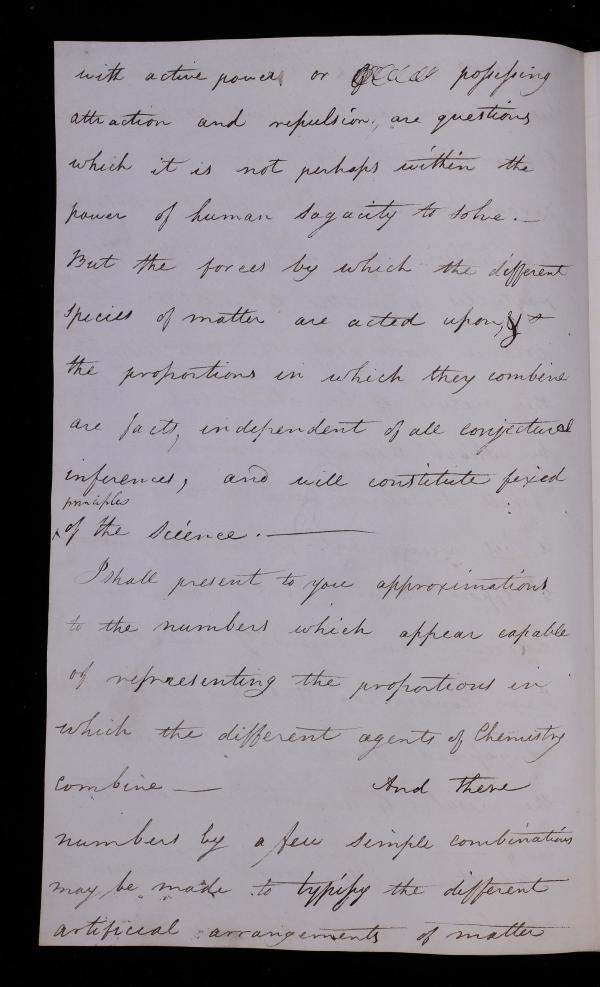 with active power or possessing
attraction and repulsion, are questions
which it is not perhaps within the
power of human sagacity to solve. —
But the forces by which the different
species of matter are acted upon, &
the proportions in which they combine
are facts, independent of all conjectural
inferences, and will constitute fixed
principles
of the science. —
I shall present to you approximations
to the numbers which appear capable
of representing the proportions in
which the different agents of Chemistry
combine — And these
numbers by a few simple combinations
may be made to typify the different
artificial arrangements of matter